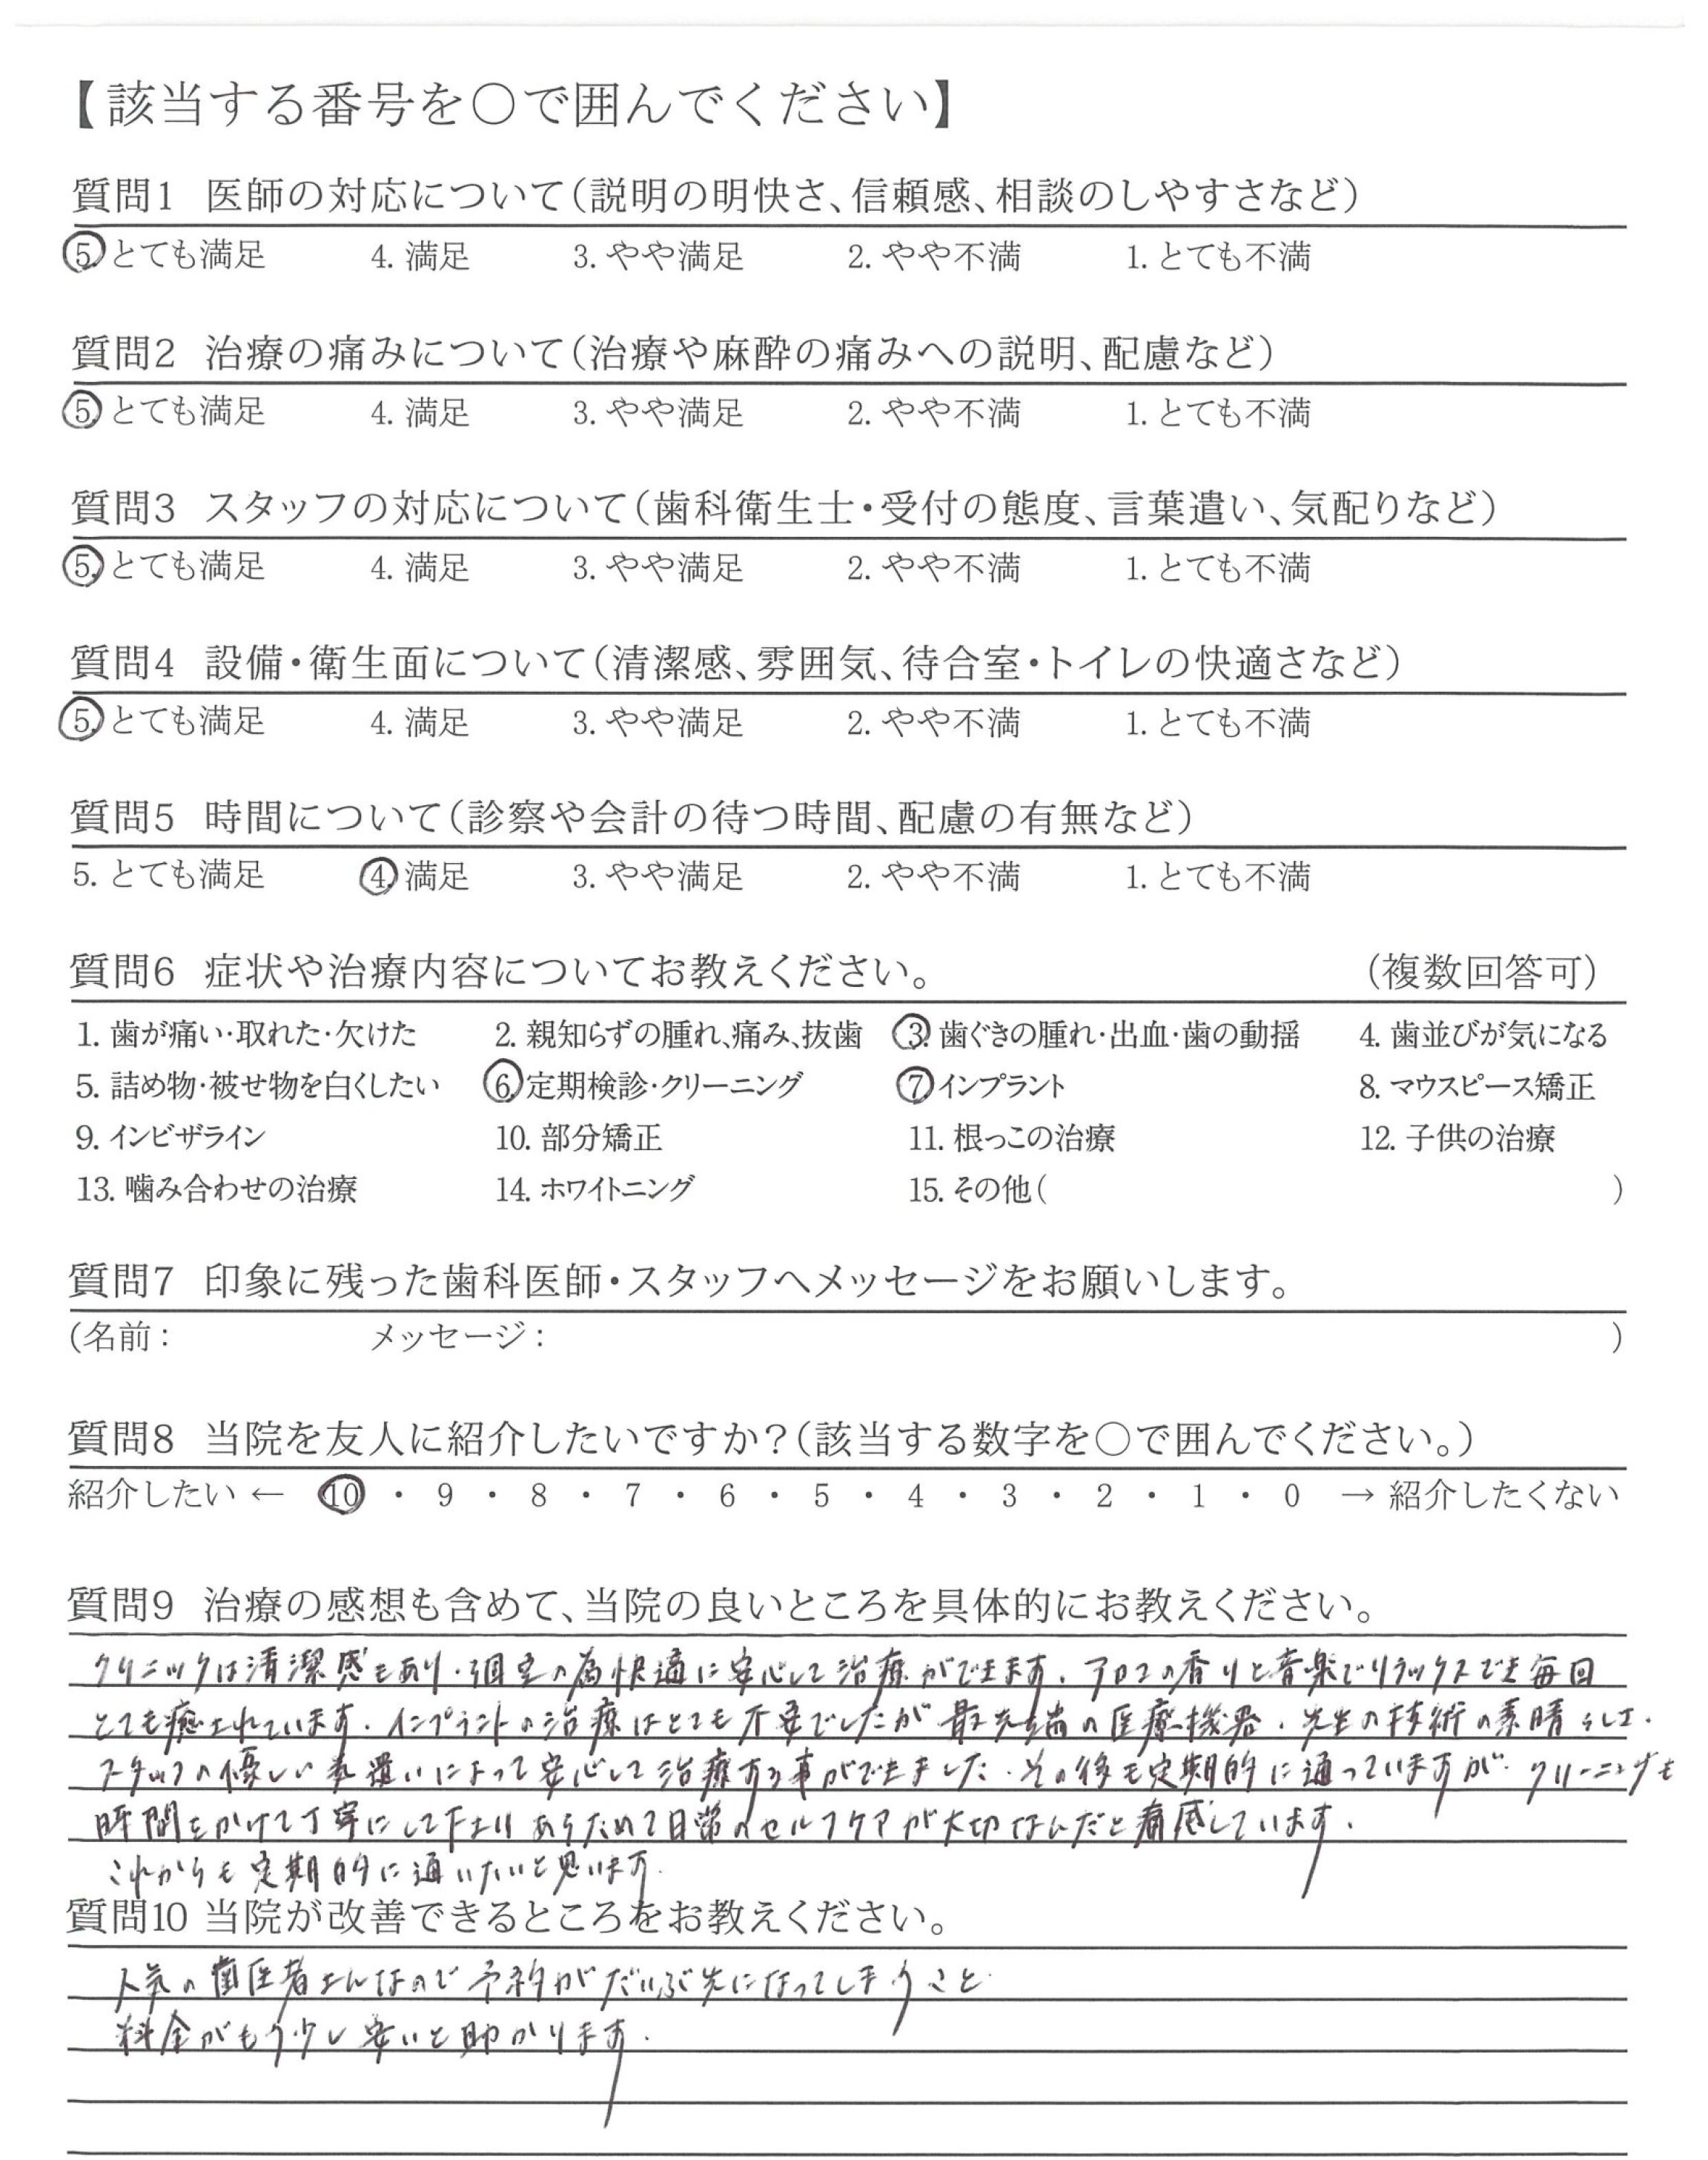 【該当する番号を○で囲んでください】
質問1 医師の対応について(説明の明快さ、信頼感、相談のしやすさなど)
5. とても満足 4. 満足 3. やや満足 2. やや不満 1. とても不満
質問2 治療の痛みについて(治療や麻酔の痛みへの説明、配慮など)
5. とても満足 4. 満足 3. やや満足 2. やや不満 1. とても不満
質問3 スタッフの対応について(歯科衛生士・受付の態度、言葉遣い、気配りなど)
5. とても満足 4. 満足 3. やや満足 2. やや不満 1. とても不満
質問4 設備・衛生面について(清潔感、雰囲気、待合室・トイレの快適さなど)
5. とても満足 4. 満足 3. やや満足 2. やや不満 1. とても不満
質問5 時間について(診察や会計の待つ時間、配慮の有無など)
5. とても満足 4. 満足 3. やや満足 2. やや不満 1. とても不満
質問6 症状や治療内容についてお教えください。 (複数回答可)
1. 歯が痛い・取れた・欠けた 2. 親知らずの腫れ、痛み、抜歯 3. 歯ぐきの腫れ・出血・歯の動揺 4. 歯並びが気になる
5. 詰め物・被せ物を白くしたい 6. 定期検診・クリーニング 7. インプラント 8. マウスピース矯正
9. インビザライン 10. 部分矯正 11. 根っこの治療 12. 子供の治療
13. 噛み合わせの治療 14. ホワイトニング 15. その他( )
質問7 印象に残った歯科医師・スタッフへメッセージをお願いします。
(名前: メッセージ: )
質問8 当院を友人に紹介したいですか?(該当する数字を○で囲んでください。)
紹介したい ← 10 ・ 9 ・ 8 ・ 7 ・ 6 ・ 5 ・ 4 ・ 3 ・ 2 ・ 1 ・ 0 → 紹介したくない
質問9 治療の感想も含めて、当院の良いところを具体的にお教えください。
クリニックは清潔感もあり、個室の為快適に安心して治療ができます。アロマの香りと音楽でリラックスでき毎回
とても癒されています。インプラントの治療はとても不安でしたが最先端の医療機器、先生の技術の素晴らしさ、
スタッフの優しい気遣いによって安心して治療する事ができました。その後も定期的に通っていますが、クリーニングも
時間をかけて丁寧にして下さりあらためて日常のセルフケアが大切なんだと痛感しています。
これからも定期的に通いたいと思います。
質問10 当院が改善できるところをお教えください。
人気の歯医者さんなので予約がだいぶ先になってしまうこと
料金がもう少し安いと助かります。